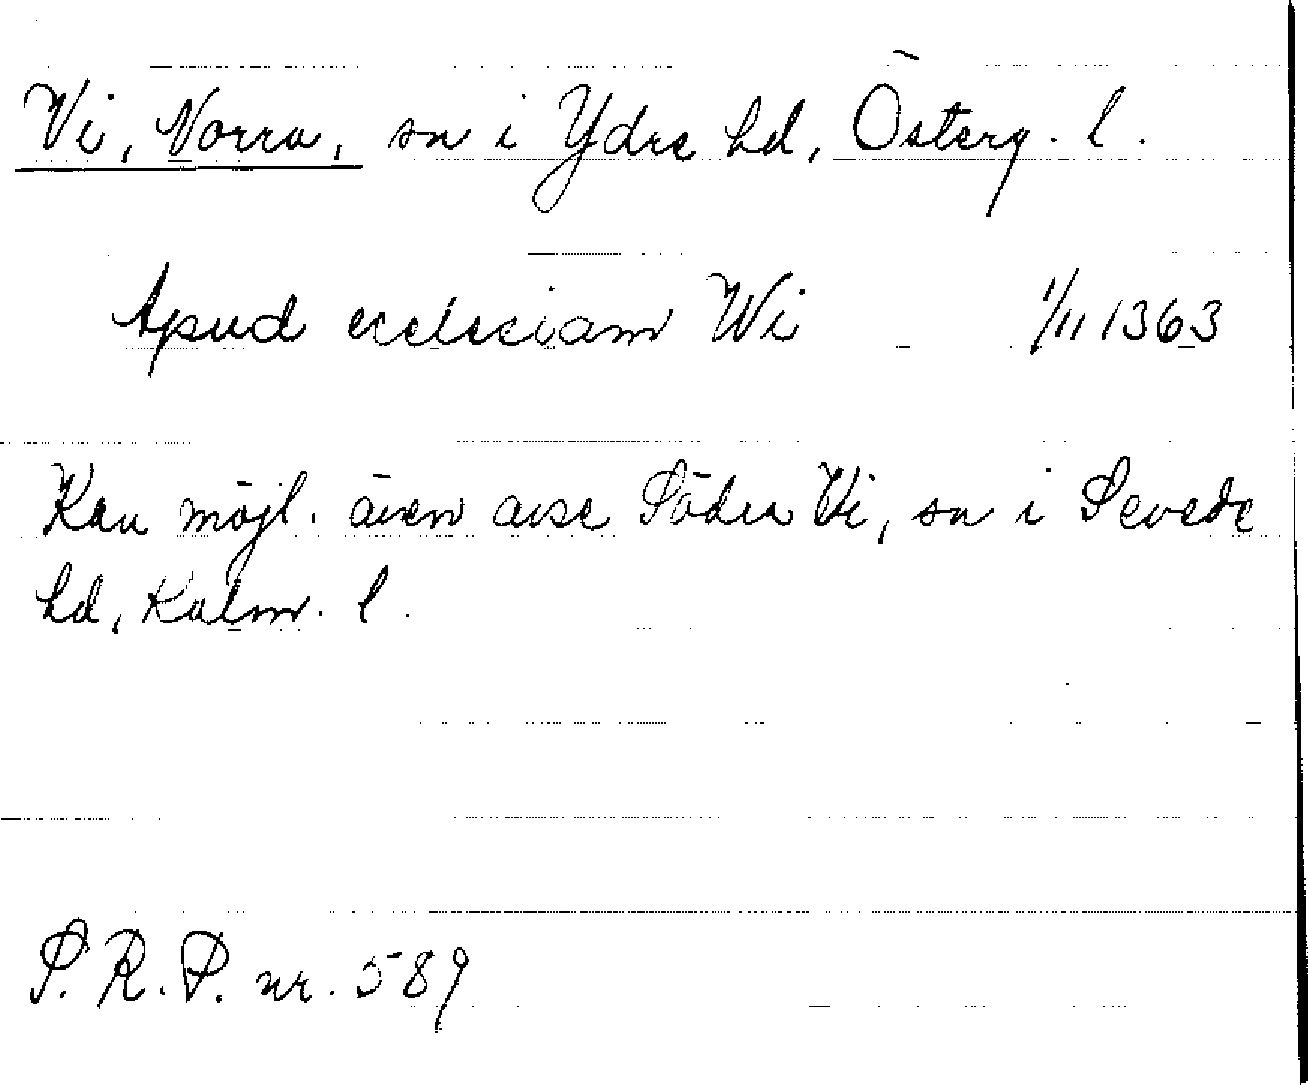 Vi, Norra, sn i Ydre hd, Österg. l.
Apud ecclesiam Wi 1/11 1363
Kan möjl. även avse Södra Vi, sn i Sevede
hd, Kalm. l.
S. R. P. nr. 589